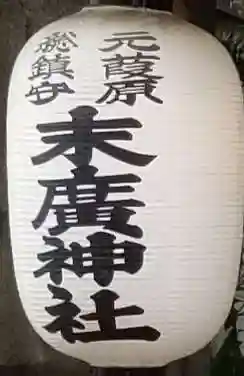 元葭原
総鎮守
末廣神社